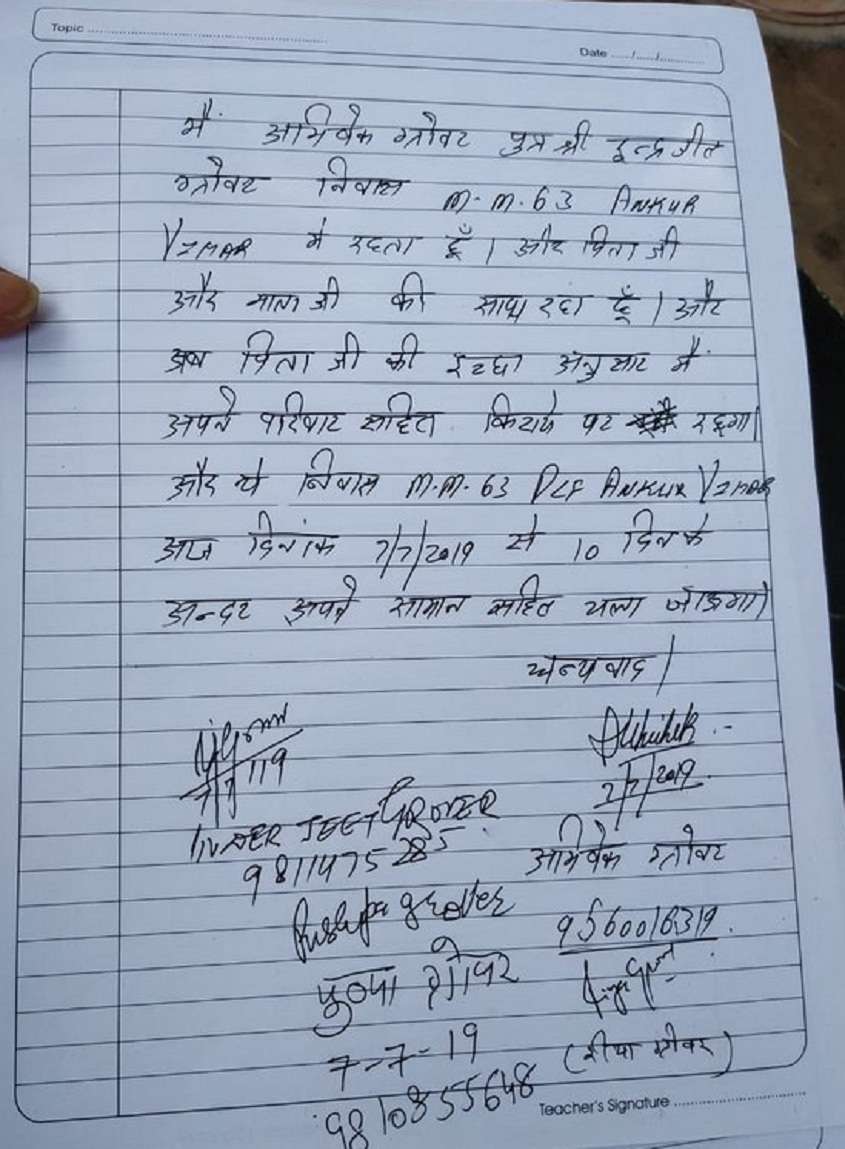 Topic
Date ..../..../............
मैं अभिषेक ग्रोवर पुत्र श्री इन्द्रजीत
ग्रोवर निवास M.M.63 ANKUR
VIHAR मे रहता हूँ। और पिता जी
और माता जी की साथ रहा हूँ। और
अब पिता जी की इच्छा अनुसार मैं
अपने परिवार सहित किराये पर रहूगा।
और ये निवास M.M.63 DLF ANKUR VIHAR
आज दिनांक 7/7/2019 से 10 दिन के
अन्दर अपने सामान सहित चला जाऊगा।
धन्यवाद।
Abhishek
7/7/19
7/7/2019
INDER JEET GROVER
9811475285
अभिषेक ग्रोवर
Pushpa grover
9560016319
पुष्पा ग्रोवर
7-7-19
(रीया ग्रोवर)
9810855648
Teacher's Signature